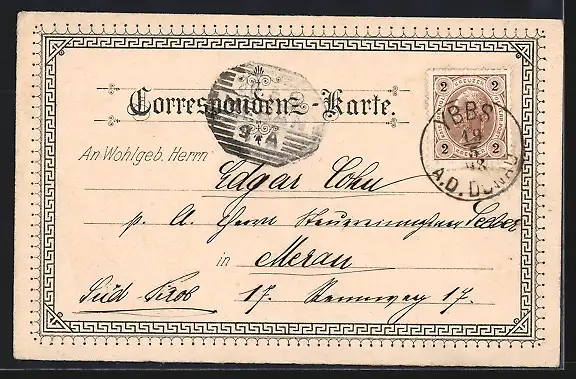 2 KREUZER 2
2 2
YBBS
19
A.D. DONAU
Correspondenz-Karte.
9 A
An Wohlgeb. Herrn
Edgar Cohn
p. A. Herrn Steuereinnehmer
in Meran
Süd Tirol 17. Rennweg 17.